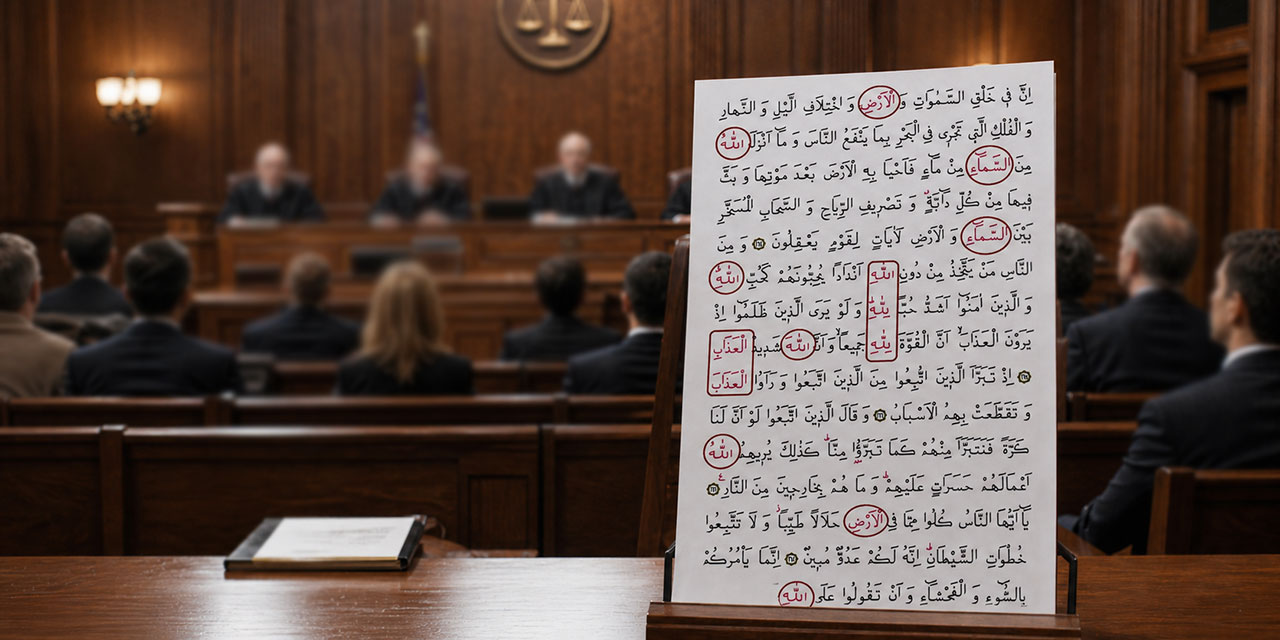 اِنَّ فٖى خَلْقِ السَّمٰوَاتِ وَ الْاَرْضِ وَ اخْتِلَافِ الَّيْلِ وَ النَّهَارِ
وَ الْفُلْكِ الَّتٖى تَجْرٖى فِى الْبَحْرِ بِمَا يَنْفَعُ النَّاسَ وَ مَٓا اَنْزَلَ اللّٰهُ
مِنَ السَّمَٓاءِ مِنْ مَٓاءٍ فَاَحْيَا بِهِ الْاَرْضَ بَعْدَ مَوْتِهَا وَ بَثَّ
فٖيهَا مِنْ كُلِّ دَٓابَّةٍ وَ تَصْرٖيفِ الرِّيَاحِ وَ السَّحَابِ الْمُسَخَّرِ
بَيْنَ السَّمَٓاءِ وَ الْاَرْضِ لَاٰيَاتٍ لِقَوْمٍ يَعْقِلُونَ وَ مِنَ
النَّاسِ مَنْ يَتَّخِذُ مِنْ دُونِ اللّٰهِ اَنْدَادًا يُحِبُّونَهُمْ كَحُبِّ اللّٰهِ
وَ الَّذٖينَ اٰمَنُٓوا اَشَدُّ حُبًّا لِلّٰهِ وَ لَوْ يَرَى الَّذٖينَ ظَلَمُٓوا اِذْ
يَرَوْنَ الْعَذَابَ اَنَّ الْقُوَّةَ لِلّٰهِ جَمٖيعًا وَ اَنَّ اللّٰهَ شَدٖيدُ الْعَذَابِ
اِذْ تَبَرَّاَ الَّذٖينَ اتُّبِعُوا مِنَ الَّذٖينَ اتَّبَعُوا وَ رَاَوُا الْعَذَابَ
وَ تَقَطَّعَتْ بِهِمُ الْاَسْبَابُ وَ قَالَ الَّذٖينَ اتَّبَعُوا لَوْ اَنَّ لَنَا
كَرَّةً فَنَتَبَرَّاَ مِنْهُمْ كَمَا تَبَرَّؤُا مِنَّا كَذٰلِكَ يُرٖيهِمُ اللّٰهُ
اَعْمَالَهُمْ حَسَرَاتٍ عَلَيْهِمْ وَ مَا هُمْ بِخَارِجٖينَ مِنَ النَّارِ
يَٓا اَيُّهَا النَّاسُ كُلُوا مِمَّا فِى الْاَرْضِ حَلَالًا طَيِّبًا وَ لَا تَتَّبِعُوا
خُطُوَاتِ الشَّيْطَانِ اِنَّهُ لَكُمْ عَدُوٌّ مُبٖينٌ اِنَّمَا يَاْمُرُكُمْ
بِالسُّٓوءِ وَ الْفَحْشَٓاءِ وَ اَنْ تَقُولُوا عَلَى اللّٰهِ